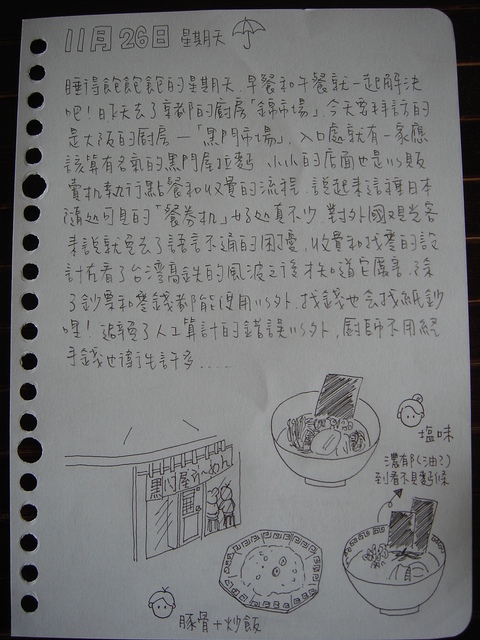 11月26日 星期天
睡得飽飽飽的星期天,早餐和午餐就一起解決
吧!昨天去了京都的廚房「錦市場」,今天要拜訪的
是大阪的廚房—「黑門市場」,入口處就有一家應
該算有名氣的黑門屋拉麵,小小的店面也是以販
賣机執行點餐和收費的流程,說起來這種日本
隨處可見的「餐券机」好處真不少,對外國觀光客
來說就免去了語言不通的困擾,收費和找零的設
計在看了台灣高鉄的風波之後才知道它厲害,除
了鈔票和零錢都能使用以外,找錢也会找紙鈔
哩!避免了人工算計的錯誤以外,廚師不用經
手錢也衛生許多....
塩味
濃郁(油?)
到看不見麵條
黑門屋らーめん
豚骨+炒飯